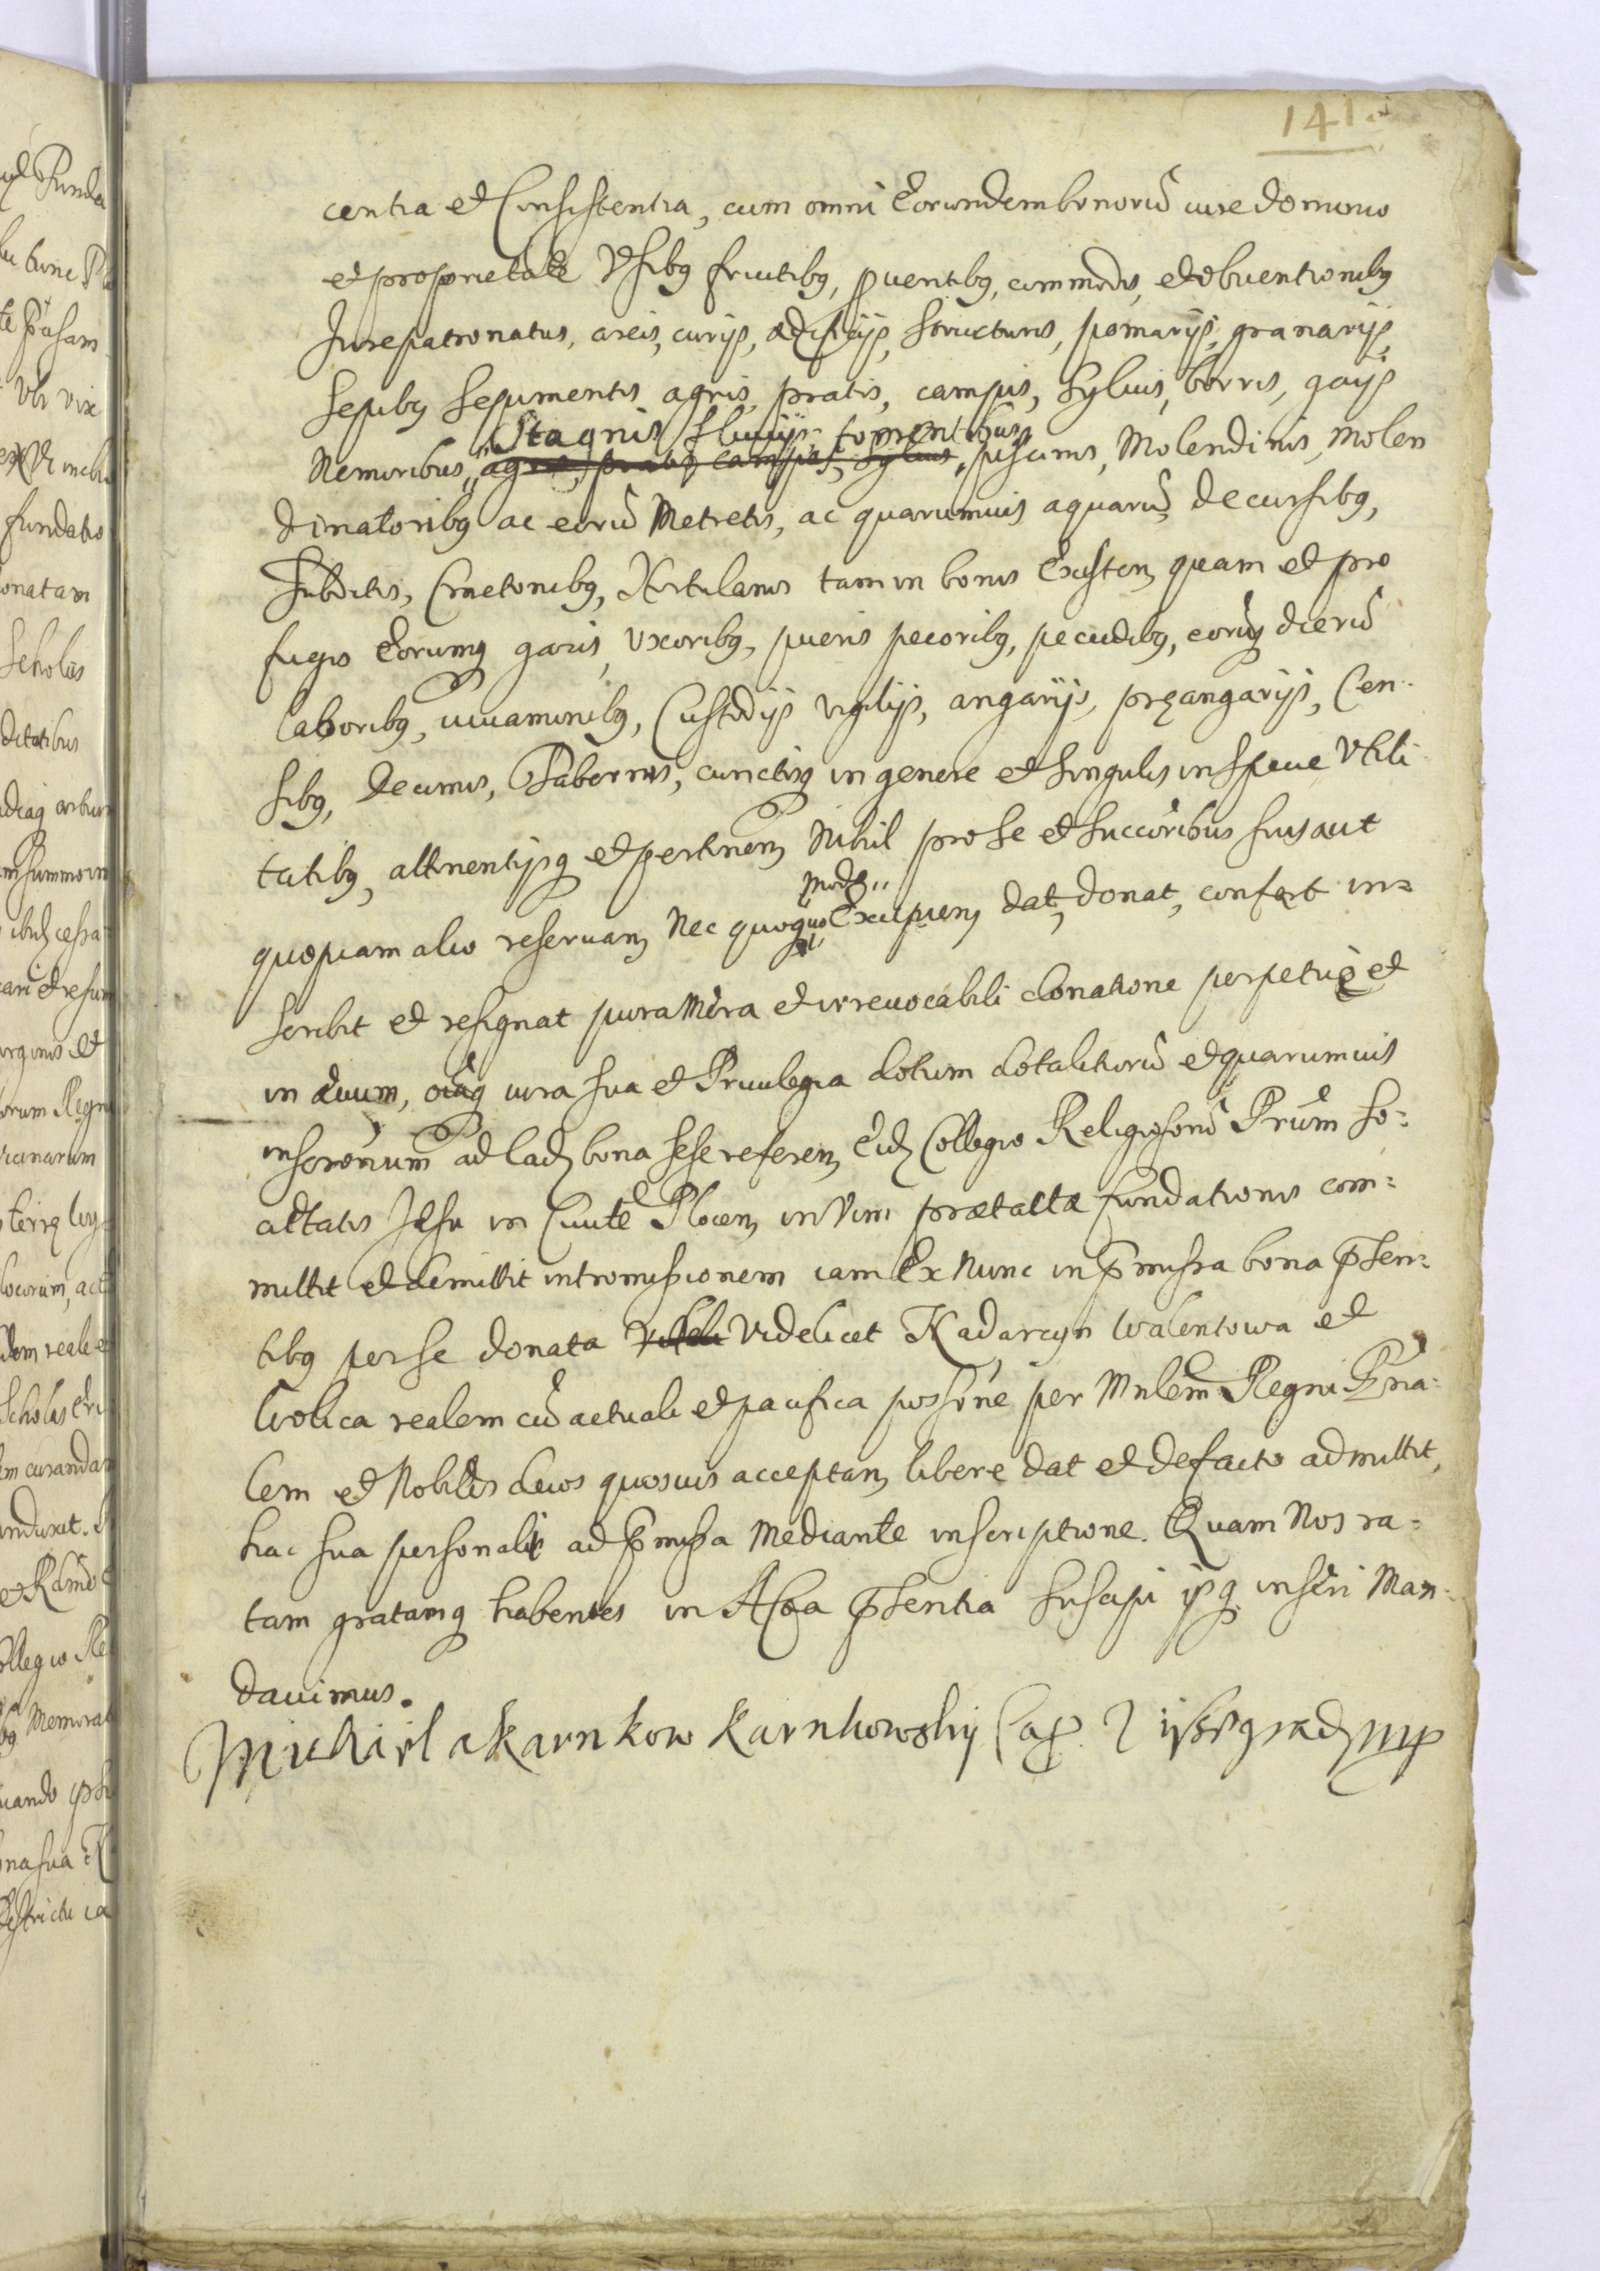 141
centia et Consistentia, cum omni Eorundem bonorũ iure dominio
et proprietate Vsibq fructibq, ꝓuentibq, commodis, et obuentionibq
Jurepatronatus, areis, curijs, ædificijs, structuris, pomarijs, granarijs,
sepibq sepimentis agris, pratis, campis, syluis, borris, gaijs
Stagnis fluuijs torrentibus
Nemoribus, agris, pratis campis, syluis, piscinis, Molendinis, Molen
dinatoribq ac eorũ Metretis, ac quarumuis aquarũ decursibq,
Subditis, Cmetonibq, Hortulanis tam in bonis Existen quam et pro
fugis Eorumq gazis, Vxoribq, pueris pecoribq, pecudibq, eorũq dierũ
laboribq, iuuaminibq, Custodijs vigilijs, angarijs, pręangarijs, Cen-
sibq, decimis, Tabernis, cunctisq in genere et singulis in specie Vtili
tatibq, attinentijsq et pertinen Nihil pro se et succoribus suis aut
modo
quopiam alio reseruan Nec quoquo Excipien dat, donat, confert in=
scribit et resignat pura Mera et irreuocabili donatione perpetuò et
in æuum, oiaq iura sua et Priuilegia dotium dotalitiorũ et quarumuis
inscronum ad ead bona sese referen Eid Collegio Religiosorũ Prũm So=
cietatis Jesu in Ciuite Plocen in Vim prætactæ fundationis com=
mittit et demittit intromissionem iam Ex Nunc in p̃missa bona p̃sen=
tibq per se donata Videlicet Kadarcyn Walentowa et
Wolica realem cũ actuali et pacifica possone per Mnlem Regni Gna=
lem et Nobiles duos quosuis acceptan libere dat et defacto admittit,
hac sua personali ad p̃missa Mediante inscriptione. Quam Nos ra=
tam gratamq habentes in Acta p̃sentia suscipi ijsq inseri Man-
dauimus.
Michael a Karnkow Karnkowskij Cap. Wissegrad mp